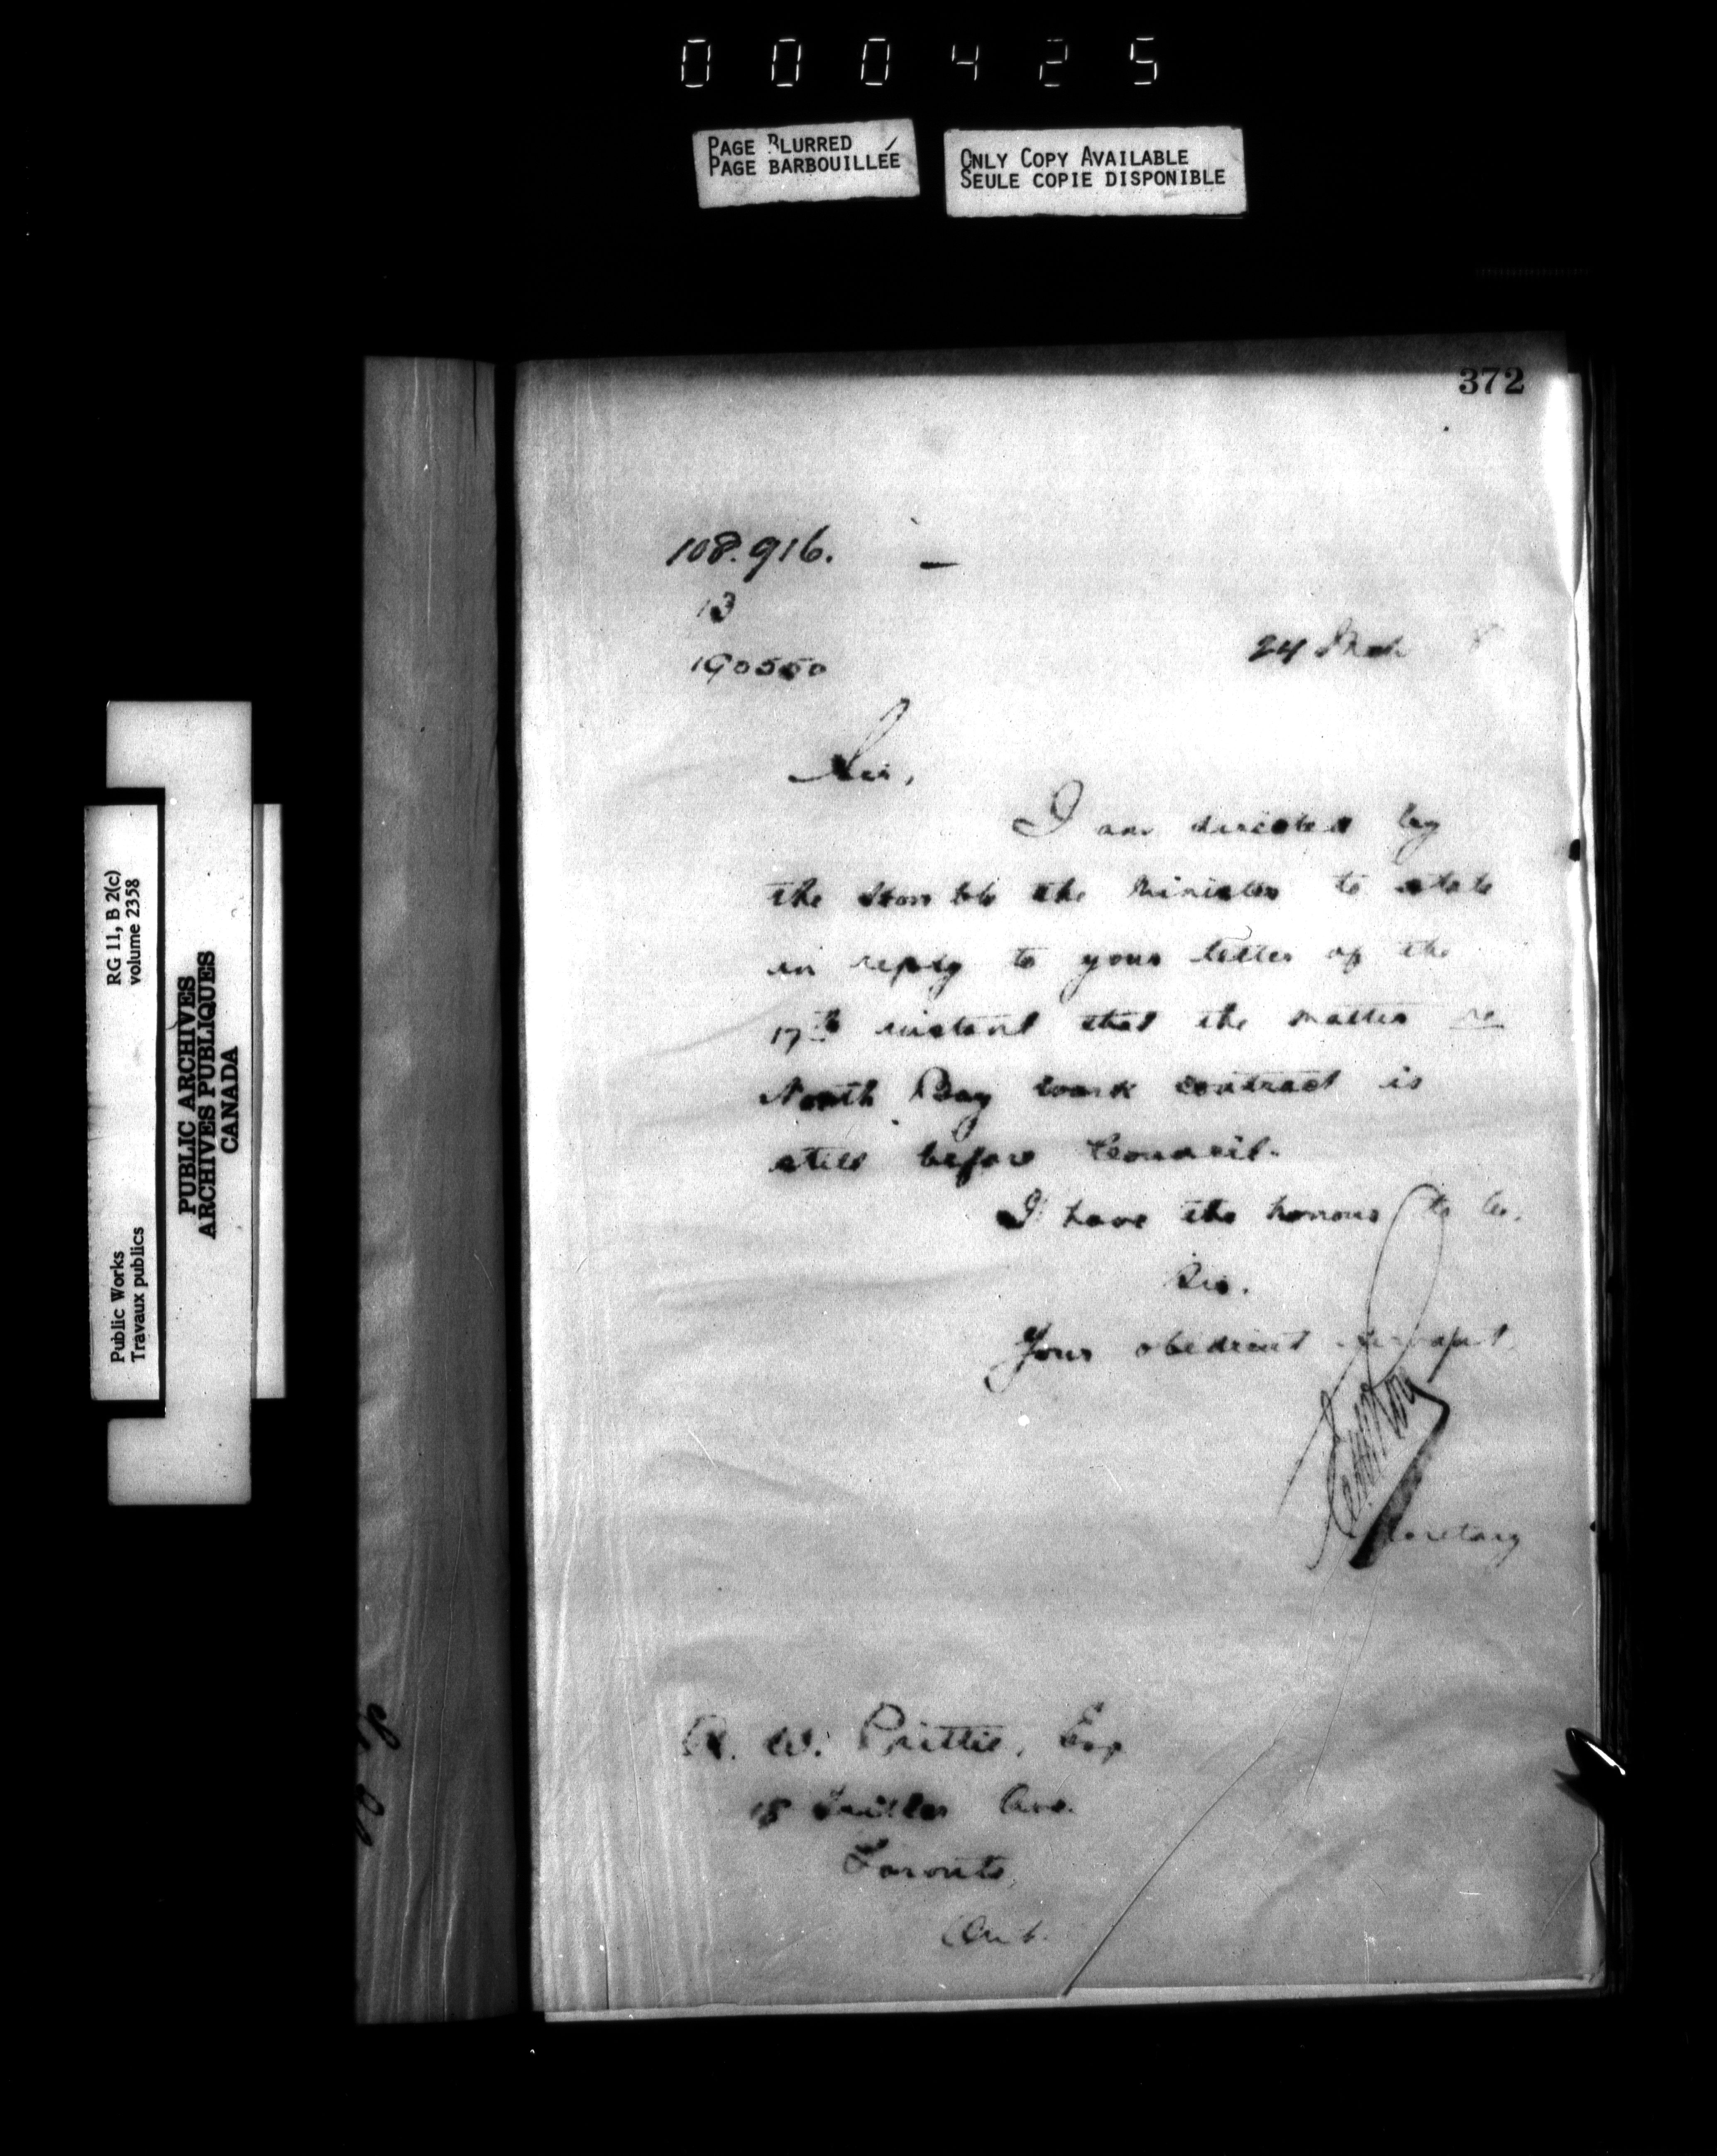 000425
PAGE BLURRED
PAGE BARBOUILLÉE
ONLY COPY AVAILABLE
SEULE COPIE DISPONIBLE
372
108.916.
13
190550
24 Mch 8
Sir,
I am directed by
the Honble the Minister to state
in reply to your letter of the
17th instant that the matter re
North Bay work contract is
still before Council.
I have the honour to be,
Sir.
Your obedient servant,
Secretary
R. W. Prittie, Esq
18 Ave.
Toronto,
Ont.
RG 11, B 2(c)
volume 2358
Public Works
Travaux publics
PUBLIC ARCHIVES
ARCHIVES PUBLIQUES
CANADA